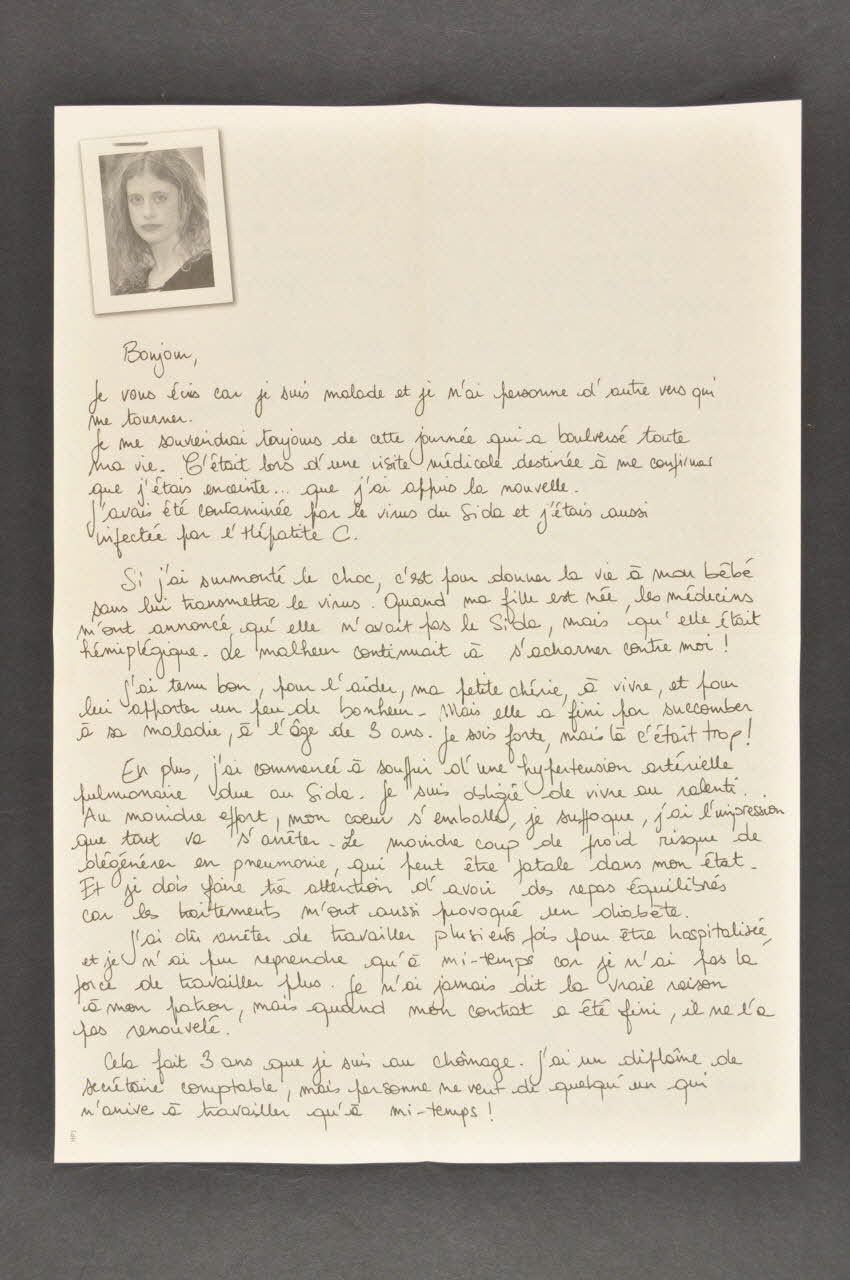 Bonjour,
Je vous écris car je suis malade et je n'ai personne d'autre vers qui
me tourner.
Je me souviendrai toujours de cette journée qui a boulversé toute
ma vie. C'était lors d'une visite médicale destinée à me confirmer
que j'étais enceinte... que j'ai appris la nouvelle.
J'avais été contaminée par le virus du Sida et j'étais aussi
infectée par l'Hépatite C.
Si j'ai surmonté le choc, c'est pour donner la vie à mon bébé
sans lui transmettre le virus. Quand ma fille est née, les médecins
m'ont annoncé qu'elle n'avait pas le Sida, mais qu'elle était
hémiplégique. Le malheur continuait à s'acharner contre moi !
J'ai tenu bon, pour l'aider, ma petite chérie, à vivre, et pour
lui apporter un peu de bonheur. Mais elle a fini par succomber
à sa maladie, à l'âge de 3 ans. Je suis forte, mais là c'était trop !
En plus, j'ai commencé à souffrir d'une hypertension artérielle
pulmonaire due au Sida. Je suis obligée de vivre au ralenti.
Au moindre effort, mon coeur s'emballe, je suffoque, j'ai l'impression
que tout va s'arrêter. Le moindre coup de froid risque de
dégénérer en pneumonie, qui peut être fatale dans mon état.
Et je dois faire très attention d'avoir des repas équilibrés
car les traitements m'ont aussi provoqué un diabète.
J'ai dû arrêter de travailler plusieurs fois pour être hospitalisée,
et je n'ai pu reprendre qu'à mi-temps car je n'ai pas la
force de travailler plus. Je n'ai jamais dit la vraie raison
à mon patron, mais quand mon contrat a été fini, il ne l'a
pas renouvelé.
Cela fait 3 ans que je suis au chômage. J'ai un diplôme de
secrétaire comptable, mais personne ne veut de quelqu'un qui
n'arrive à travailler qu'à mi-temps !